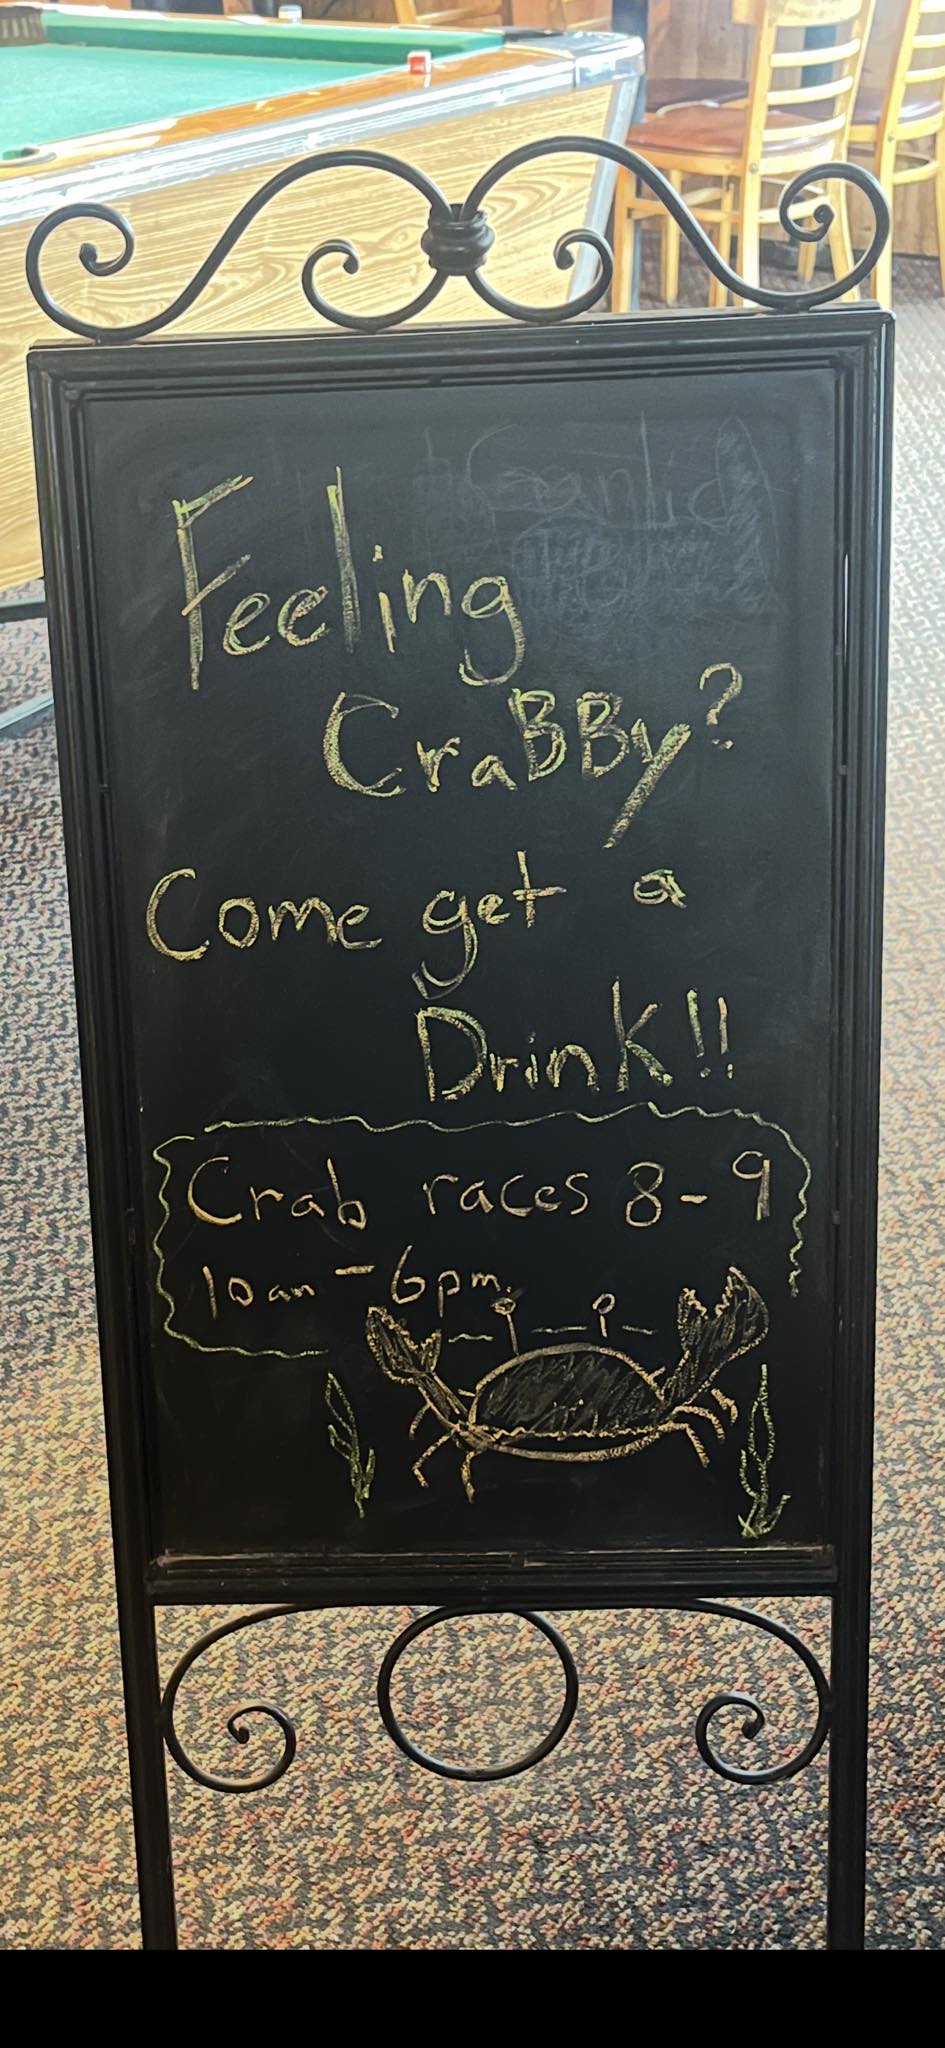 Feeling
CraBBy?
Come get a
Drink!!
Crab races 8-9
10am - 6pm.